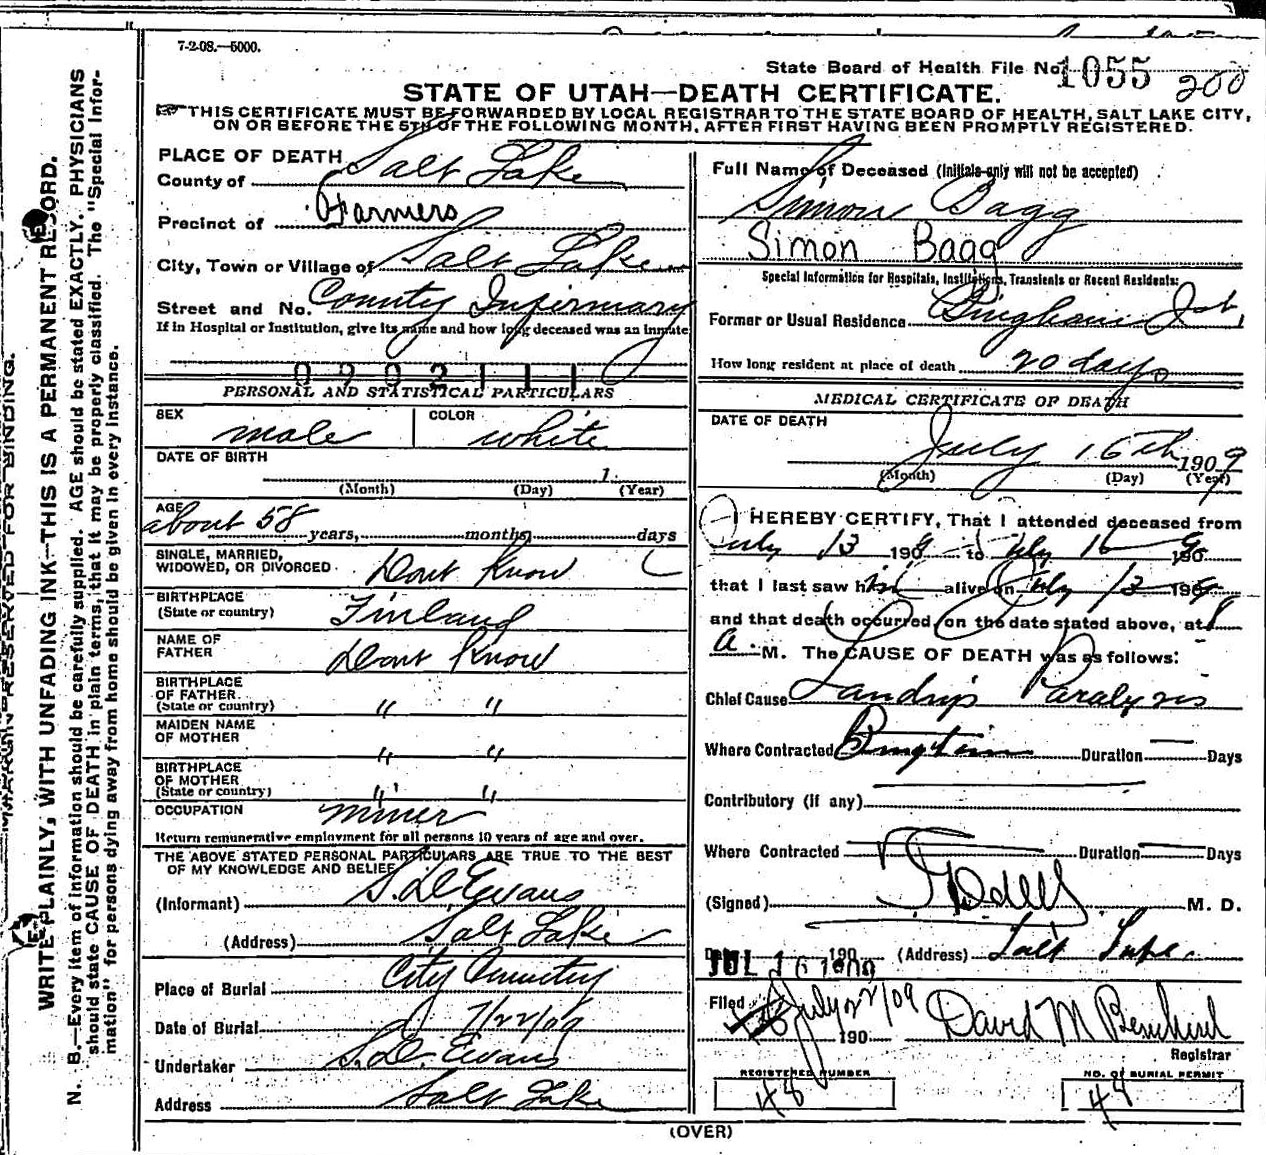 7-2-08.—5000.
State Board of Health File No. 1055 200
STATE OF UTAH—DEATH CERTIFICATE.
THIS CERTIFICATE MUST BE FORWARDED BY LOCAL REGISTRAR TO THE STATE BOARD OF HEALTH, SALT LAKE CITY,
ON OR BEFORE THE 5TH OF THE FOLLOWING MONTH, AFTER FIRST HAVING BEEN PROMPTLY REGISTERED.
MARGIN RESERVED FOR BINDING.
WRITE PLAINLY, WITH UNFADING INK—THIS IS A PERMANENT RECORD.
N. B.—Every item of information should be carefully supplied. AGE should be stated EXACTLY. PHYSICIANS
should state CAUSE OF DEATH in plain terms, that it may be properly classified. The "Special Infor-
mation" for persons dying away from home should be given in every instance.
PLACE OF DEATH
County of Salt Lake
Precinct of Farmers
City, Town or Village of Salt Lake
Street and No. County Infirmary
If in Hospital or Institution, give its name and how long deceased was an inmate
0202111
PERSONAL AND STATISTICAL PARTICULARS
SEX male COLOR white
DATE OF BIRTH
1
(Month) (Day) (Year)
AGE
about 58 years, months, days
SINGLE, MARRIED,
WIDOWED, OR DIVORCED Dont Know
BIRTHPLACE
(State or country) Finland
NAME OF
FATHER Dont Know
BIRTHPLACE
OF FATHER
(State or country) " "
MAIDEN NAME
OF MOTHER " "
BIRTHPLACE
OF MOTHER
(State or country) " "
OCCUPATION miner
Return remunerative employment for all persons 10 years of age and over.
THE ABOVE STATED PERSONAL PARTICULARS ARE TRUE TO THE BEST
OF MY KNOWLEDGE AND BELIEF
(Informant) S. D. Evans
(Address) Salt Lake
Place of Burial City Cemetery
Date of Burial 7/22/09
Undertaker S. D. Evans
Address Salt Lake
Full Name of Deceased (Initials only will not be accepted)
Simon Bagg
Simon Bagg
Special Information for Hospitals, Institutions, Transients or Recent Residents:
Former or Usual Residence Bingham Jct.
How long resident at place of death 20 days
MEDICAL CERTIFICATE OF DEATH
DATE OF DEATH
July 16th 1909
(Month) (Day) (Year)
I HEREBY CERTIFY, That I attended deceased from
July 13 1909 to July 16 1909
that I last saw him alive on July 13 1909
and that death occurred on the date stated above, at 8
a. M. The CAUSE OF DEATH was as follows:
Chief Cause Landrys Paralysis
Where Contracted Duration Days
Contributory (if any)
Where Contracted Duration Days
(Signed) M. D.
JUL 16 1909 190 (Address) Salt Lake
Filed July 22/09 190 David M
Registrar
REGISTERED NUMBER
48
NO. OF BURIAL PERMIT
48
(OVER)